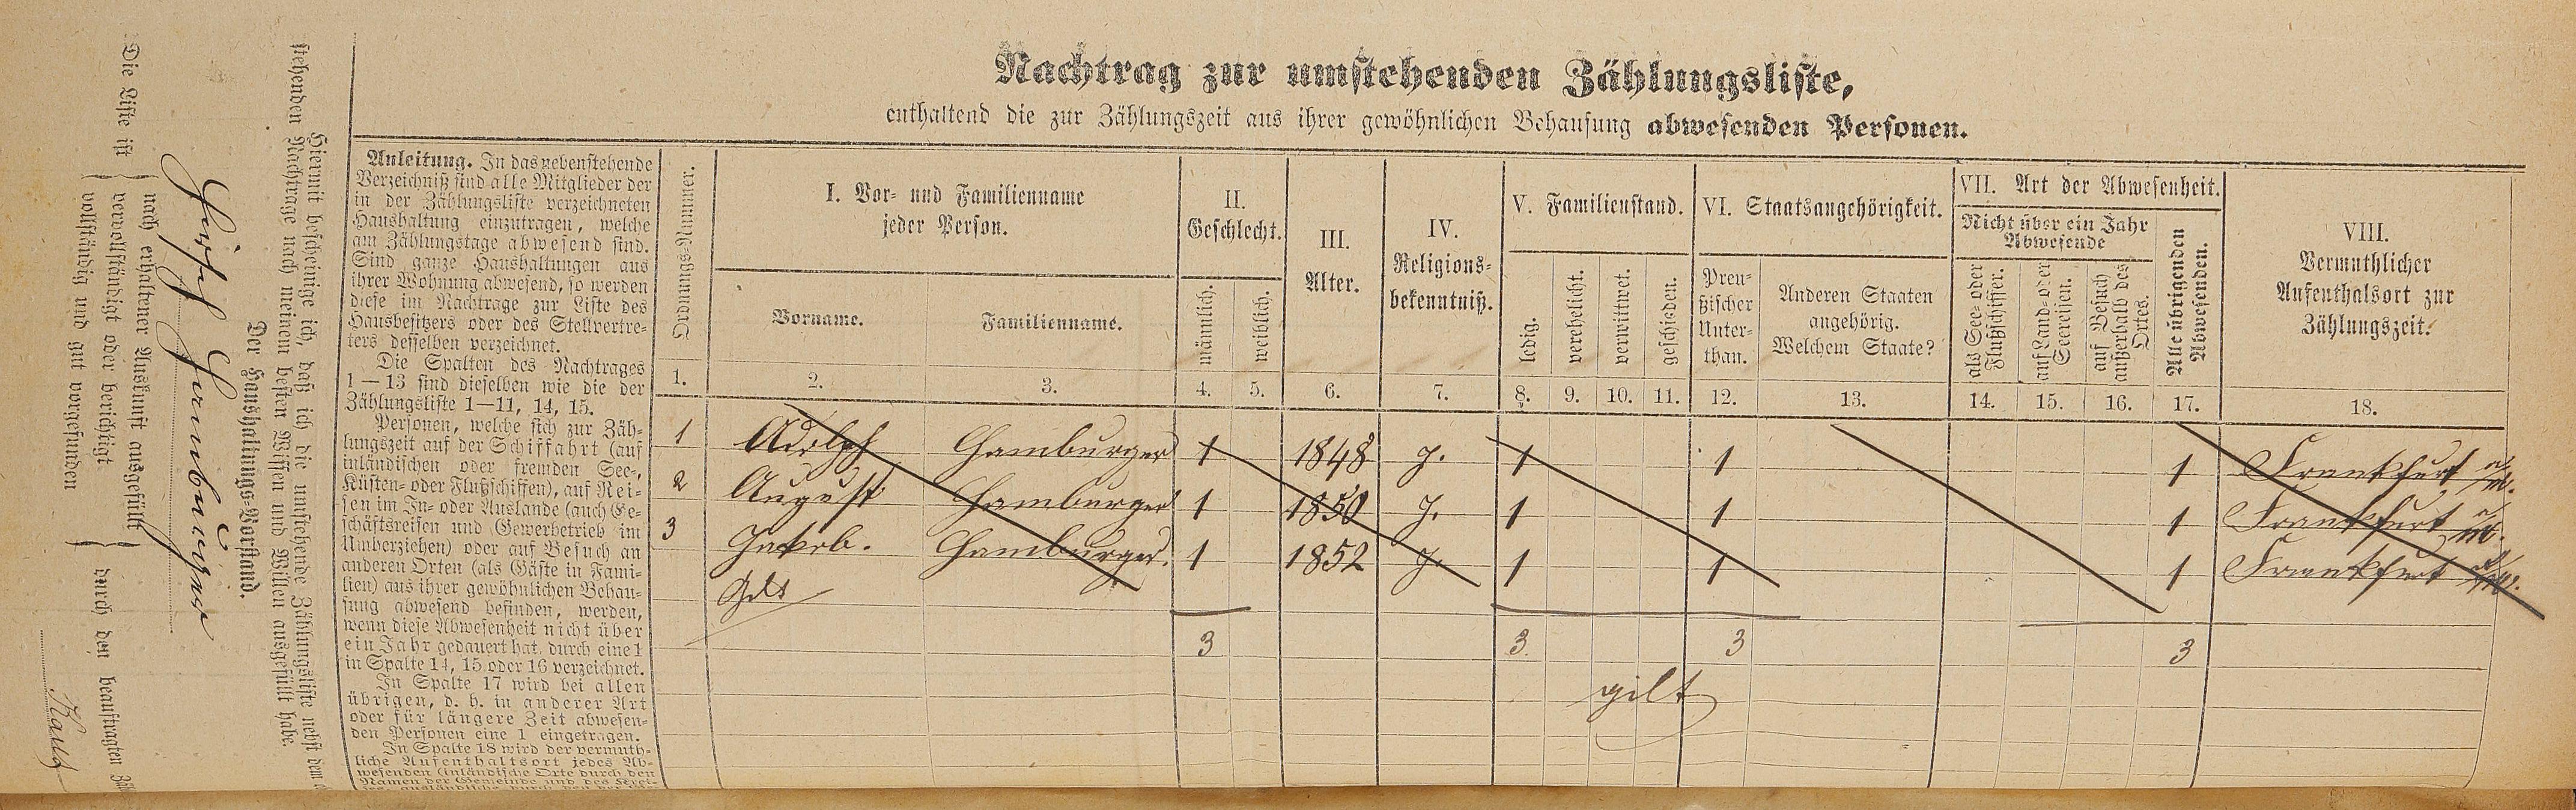 Nachtrag zur umstehenden Zählungsliste,
enthaltend die zur Zählungszeit aus ihrer gewöhnlichen Behausung abwesenden Personen.
Anleitung. In das nebenstehende
Verzeichniß sind alle Mitglieder der
in der Zählungsliste verzeichneten
Haushaltung einzutragen, welche
am Zählungstage abwesend sind.
Sind ganze Haushaltungen aus
ihrer Wohnung abwesend, so werden
diese im Nachtrage zur Liste des
Hausbesitzers oder des Stellvertre-
ters desselben verzeichnet.
Die Spalten des Nachtrages
1—13 sind dieselben wie die der
Zählungsliste 1—11, 14, 15.
Personen, welche sich zur Zäh-
lungszeit auf der Schiffahrt (auf
inländischen oder fremden See-,
Küsten- oder Flußschiffen), auf Rei-
sen im In- oder Auslande (auch Ge-
schäftsreisen und Gewerbetrieb im
Umherziehen) oder auf Besuch an
anderen Orten (als Gäste in Fami-
lien) aus ihrer gewöhnlichen Behau-
sung abwesend befinden, werden,
wenn diese Abwesenheit nicht über
ein Jahr gedauert hat, durch eine 1
in Spalte 14, 15 oder 16 verzeichnet.
In Spalte 17 wird bei allen
übrigen, d. h. in anderer Art
oder für längere Zeit abwesen-
den Personen eine 1 eingetragen.
In Spalte 18 wird der vermuth-
liche Aufenthaltsort jedes Ab-
wesenden (inländische Orte durch den
Namen der Gemeinde und des Krei-
Ordnungs-Nummer.
I. Vor- und Familienname
jeder Person.
II.
Geschlecht.
III.
Alter.
IV.
Religions-
bekenntniß.
V. Familienstand.
VI. Staatsangehörigkeit.
VII. Art der Abwesenheit.
Nicht über ein Jahr
Abwesende
VIII.
Vermuthlicher
Aufenthalsort zur
Zählungszeit.
Vorname.
Familienname.
männlich.
weiblich.
ledig.
verehelicht.
verwittwet.
geschieden.
Preu-
ßischer
Unter-
than.
Anderen Staaten
angehörig.
Welchem Staate?
als See- oder
Flußschiffer.
auf Land- oder
Seereisen.
auf Besuch
außerhalb des
Ortes.
Alle übrigenden
Abwesenden.
1. 2. 3. 4. 5. 6. 7. 8. 9. 10. 11. 12. 13. 14. 15. 16. 17. 18.
1 Adolph Hamburger 1 1848 J. 1 1 1 Frankfurt a/M.
2 August Hamburger 1 1850 J. 1 1 1 Frankfurt a/M.
3 Jakob. Hamburger. 1 1852 J. 1 1 1 Frankfurt a/M.
Gilt
3 3 3 3
gilt
Hiermit bescheinige ich, daß ich die umstehende Zählungsliste nebst dem
stehenden Nachtrage nach meinem besten Wissen und Willen ausgefüllt habe.
Der Haushaltungs-Vorstand.
Hirsch Hamburger
Die Liste ist
nach erhaltener Auskunft ausgefüllt
vervollständigt oder berichtigt
vollständig und gut vorgefunden
durch den beauftragten